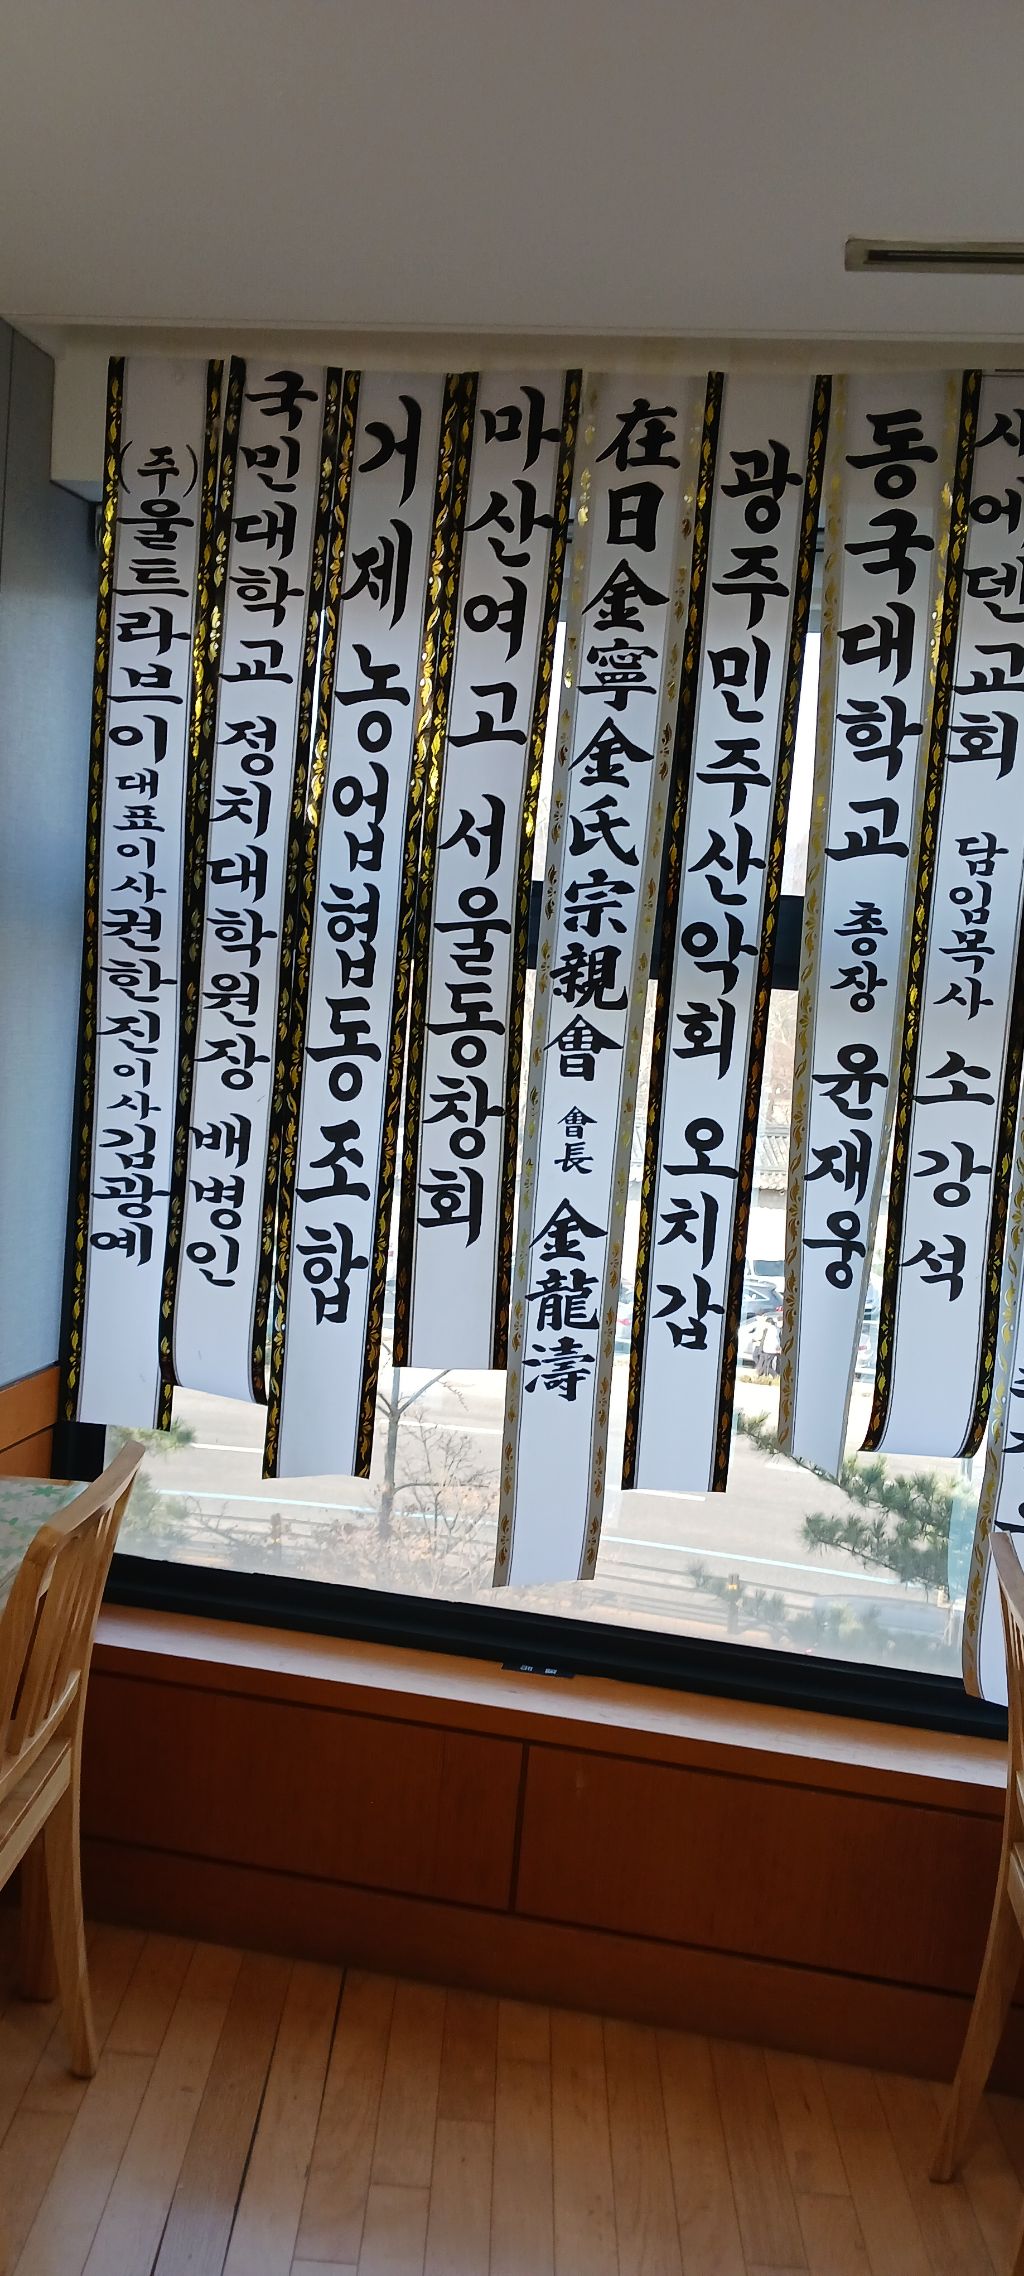 (주)울트라브이 대표이사 권한진 이사 김광예
국민대학교 정치대학원장 배병인
거제 농업협동조합
마산여고 서울동창회
在日金寧金氏宗親會 會長 金龍濤
광주민주산악회 오치갑
동국대학교 총장 윤재웅
새에덴교회 담임목사 소강석